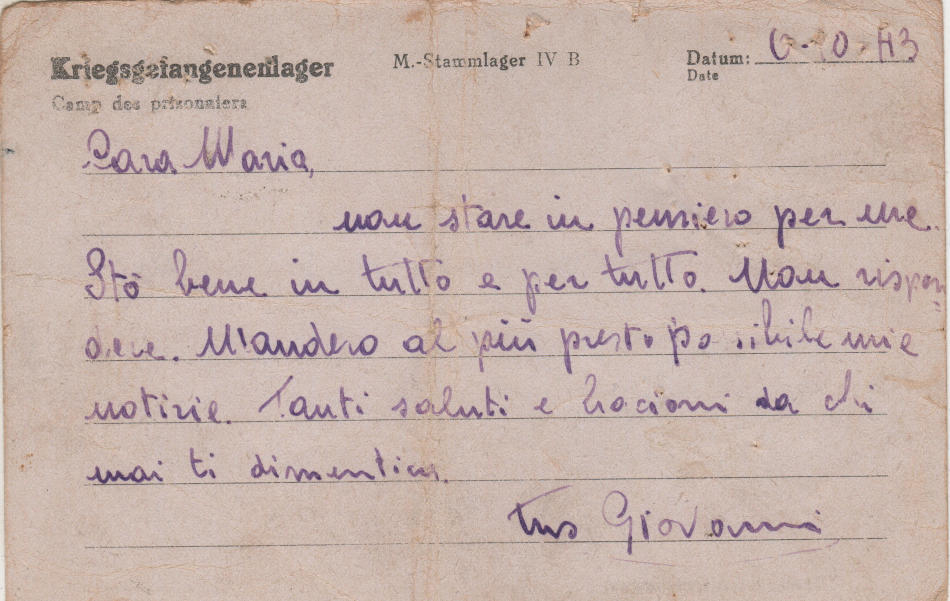 Kriegsgefangenenlager M.-Stammlager IV B Datum: 6-10-43
Camp des prisonniers Date
Cara Maria,
non stare in pensiero per me.
Stò bene in tutto e per tutto. Non rispon
dere. Manderò al più presto possibile mie
notizie. Tanti saluti e bacioni da chi
mai ti dimentica.
tuo Giovanni